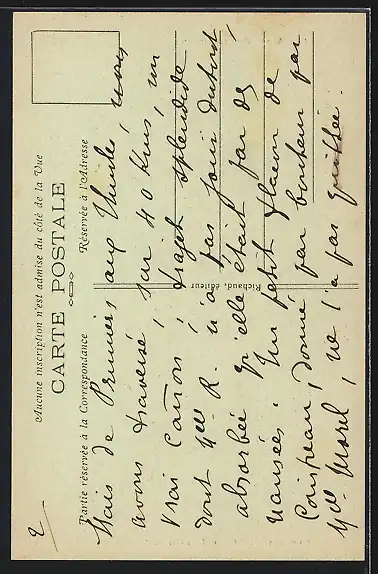 2
Aucune inscription n'est admise du côté de la Vue
CARTE POSTALE
Partie réservée à la Correspondance
Réservée à l'Adresse
Richaud, éditeur
Mais de Prunières aux Thuiles, nous
avons traversé, sur 40 kms, un
vrai Cañon ! trajet splendide
dont Melle R. n'a pas joui
absorbée qu'elle était par des
nausées. Un petit flacon de
donné par bonheur par
Melle Morel, ne l'a pas quittée.